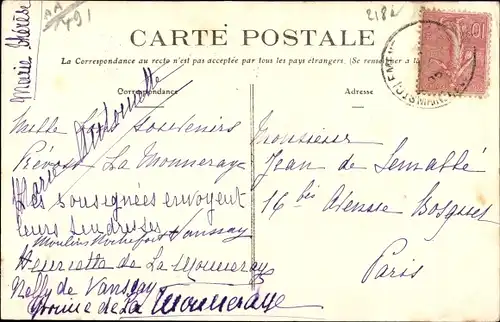 Marie Thérèse
491
218
CARTE POSTALE
La Correspondance au recto n'est pas acceptée par tous les pays étrangers. (Se renseigner à la
Correspondance
Adresse
10
Marie Antoinette
Mille Souvenirs
Prévost La Monneraye
Les soussignées envoyent
leurs tendresses
Moulins Rochefort Vanssay
Henriette de La Monneraye
Nelly de Vanssay
Yvonne de La Monneraye
Monsieur
Jean de
16 bis Avenue Bosquet
Paris